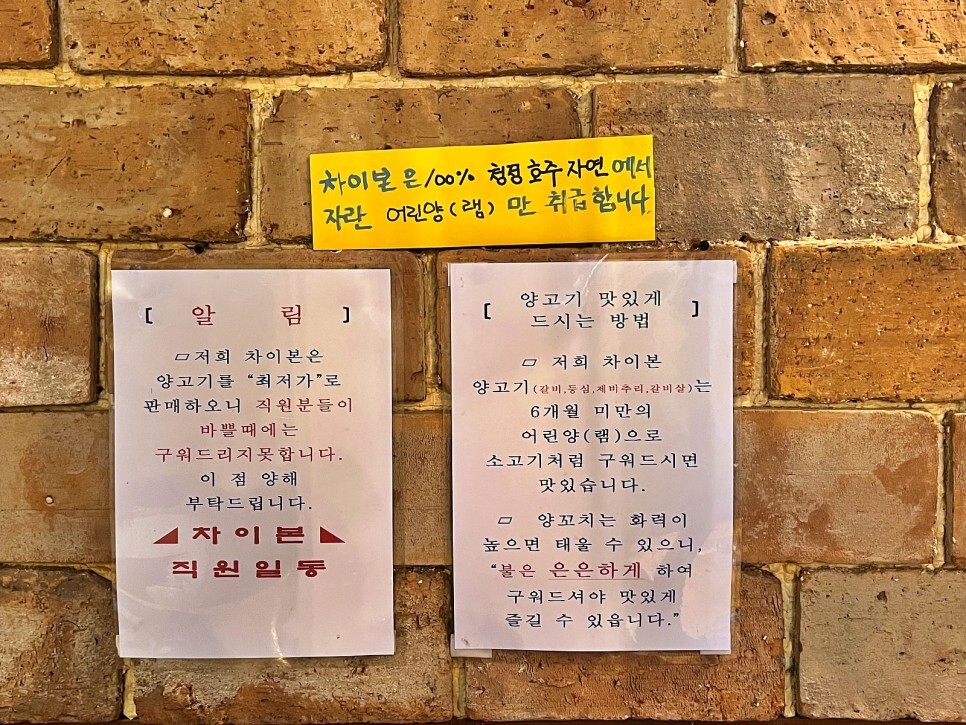 차이본은 100% 청정 호주 자연에서
자란 어린양(램)만 취급합니다
[ 알 림 ]
□저희 차이본은
양고기를 "최저가"로
판매하오니 직원분들이
바쁠때에는
구워드리지못합니다.
이 점 양해
부탁드립니다.
◢ 차이본 ◣
직원일동
[ 양고기 맛있게
드시는 방법 ]
□ 저희 차이본
양고기(갈비,등심,제비추리,갈비살)는
6개월 미만의
어린양(램)으로
소고기처럼 구워드시면
맛있습니다.
□ 양꼬치는 화력이
높으면 태울 수 있으니,
"불은 은은하게 하여
구워드셔야 맛있게
즐길 수 있읍니다."